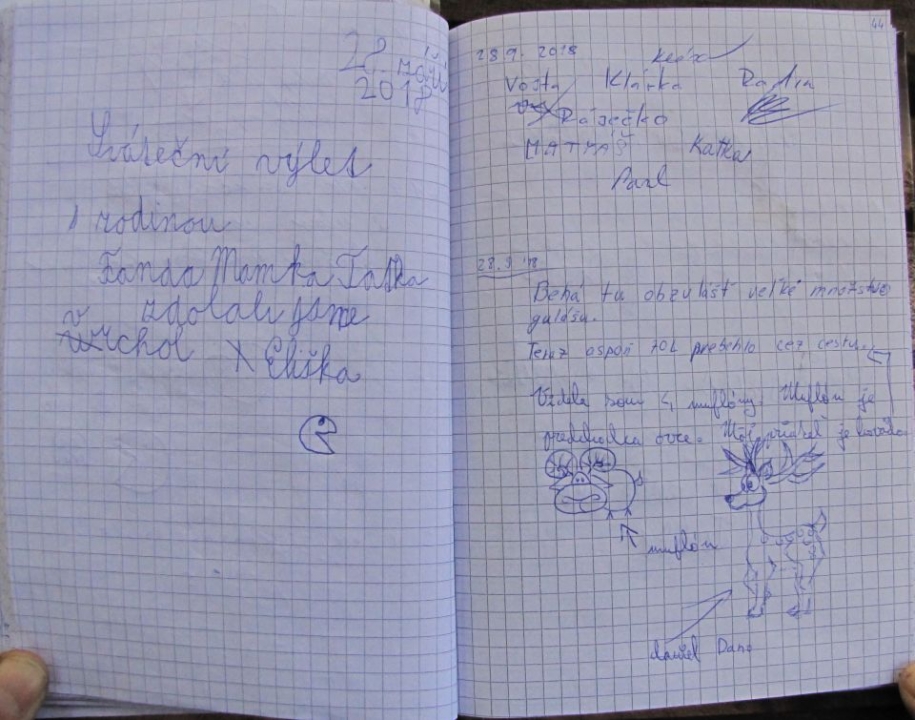 28. září
2018
Sváteční výlet
s rodinou
Fanda Mamka Taťka
zdolali jsme
vrchol X Eliška
44
28.9. 2018
Vojta Klárka
Rásečko
MATYÁŠ Katka
Pavl
28.9.18.
Behá tu obzvlášť veľké množstvo
gulášu.
Teraz aspoň 20L prebehlo cez cestu.
Videla som 4 muflóny. Muflón je
ovce. Môj priateľ je
muflón
daniel Dano